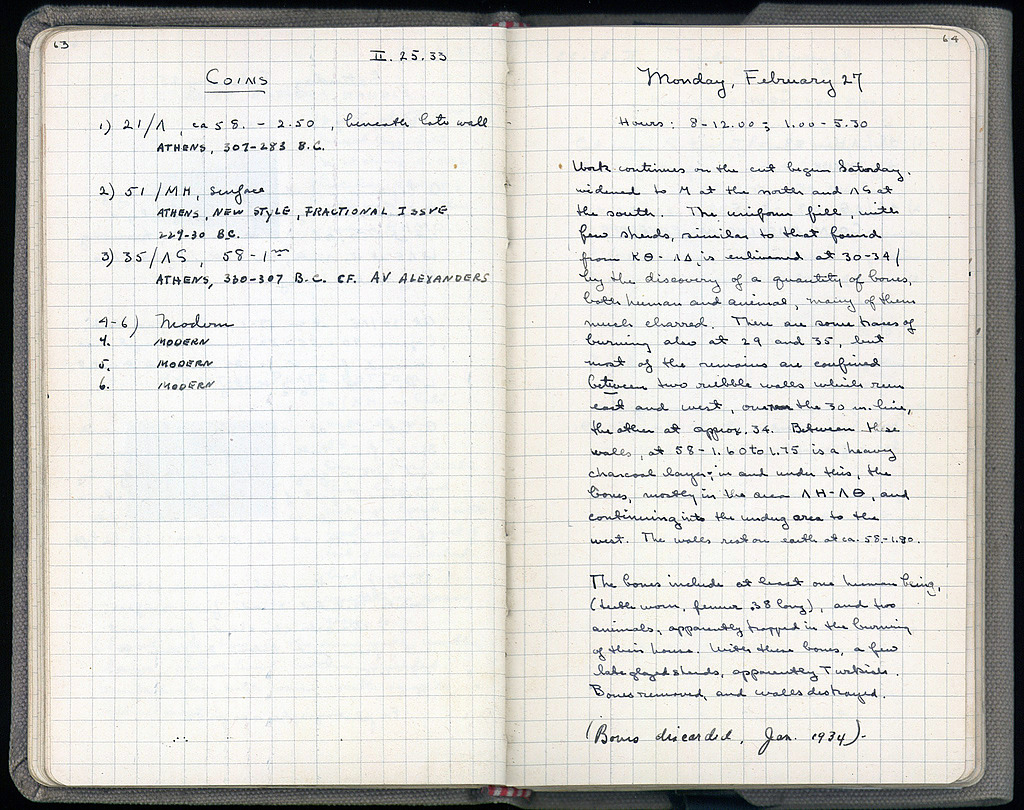 63
II. 25.33
COINS
1) 21/Λ, ca 58. - 2.50, beneath late wall
ATHENS, 307-283 B.C.
2) 51/MH, surface
ATHENS, NEW STYLE, FRACTIONAL ISSVE
229-30 B.C.
3) 35/ΛS, 58-1 m
ATHENS, 330-307 B.C. CF. AV ALEXANDERS
4-6) Modern
4. MODERN
5. MODERN
6. MODERN
64
Monday, February 27
Hours: 8-12.00; 1.00-5.30
Work continues on the cut begun Saturday.
widened to M at the north and ΛS at
the south. The uniform fill, with
few sherds, similar to that found
from KΘ-ΛΔ, is enlivened at 30-34/
by the discovery of a quantity of bones,
both human and animal, many of them
much charred. There are some traces of
burning also at 29 and 35, but
most of the remains are confined
between two rubble walls which run
east and west, one the 30 m. line,
the other at approx. 34. Between these
walls, at 58-1.60 to 1.75 is a heavy
charcoal layer; in and under this, the
bones, mostly in the area ΛH-ΛΘ, and
continuing into the undug area to the
west. The walls rest on earth at ca. 58.-1.80.
The bones include at least one human being,
(teeth worn, femur .38 long), and two
animals, apparently trapped in the burning
of their house. With these bones, a few
late glazed sherds, apparently Turkish.
Bones removed, and walls destroyed.
(Bones discarded, Jan. 1934)-